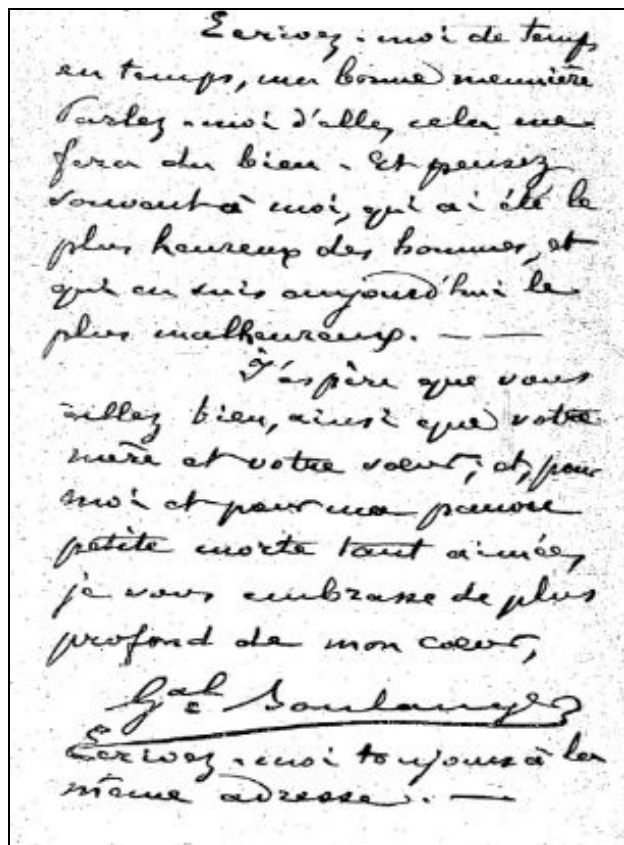 Ecrivez-moi de temps
en temps, ma bonne meunière
Parlez-moi d'elle, cela me
fera du bien - Et pensez
souvent à moi, qui ai été le
plus heureux des hommes, et
qui en suis aujourd'hui le
plus malheureux. — —
J'espère que vous
aillez bien, ainsi que votre
mère et votre sœur, et, pour
moi et pour ma pauvre
petite morte tant aimée,
je vous embrasse de plus
profond de mon cœur,
Gal Boulanger
Ecrivez-moi toujours à la
même adresse. —